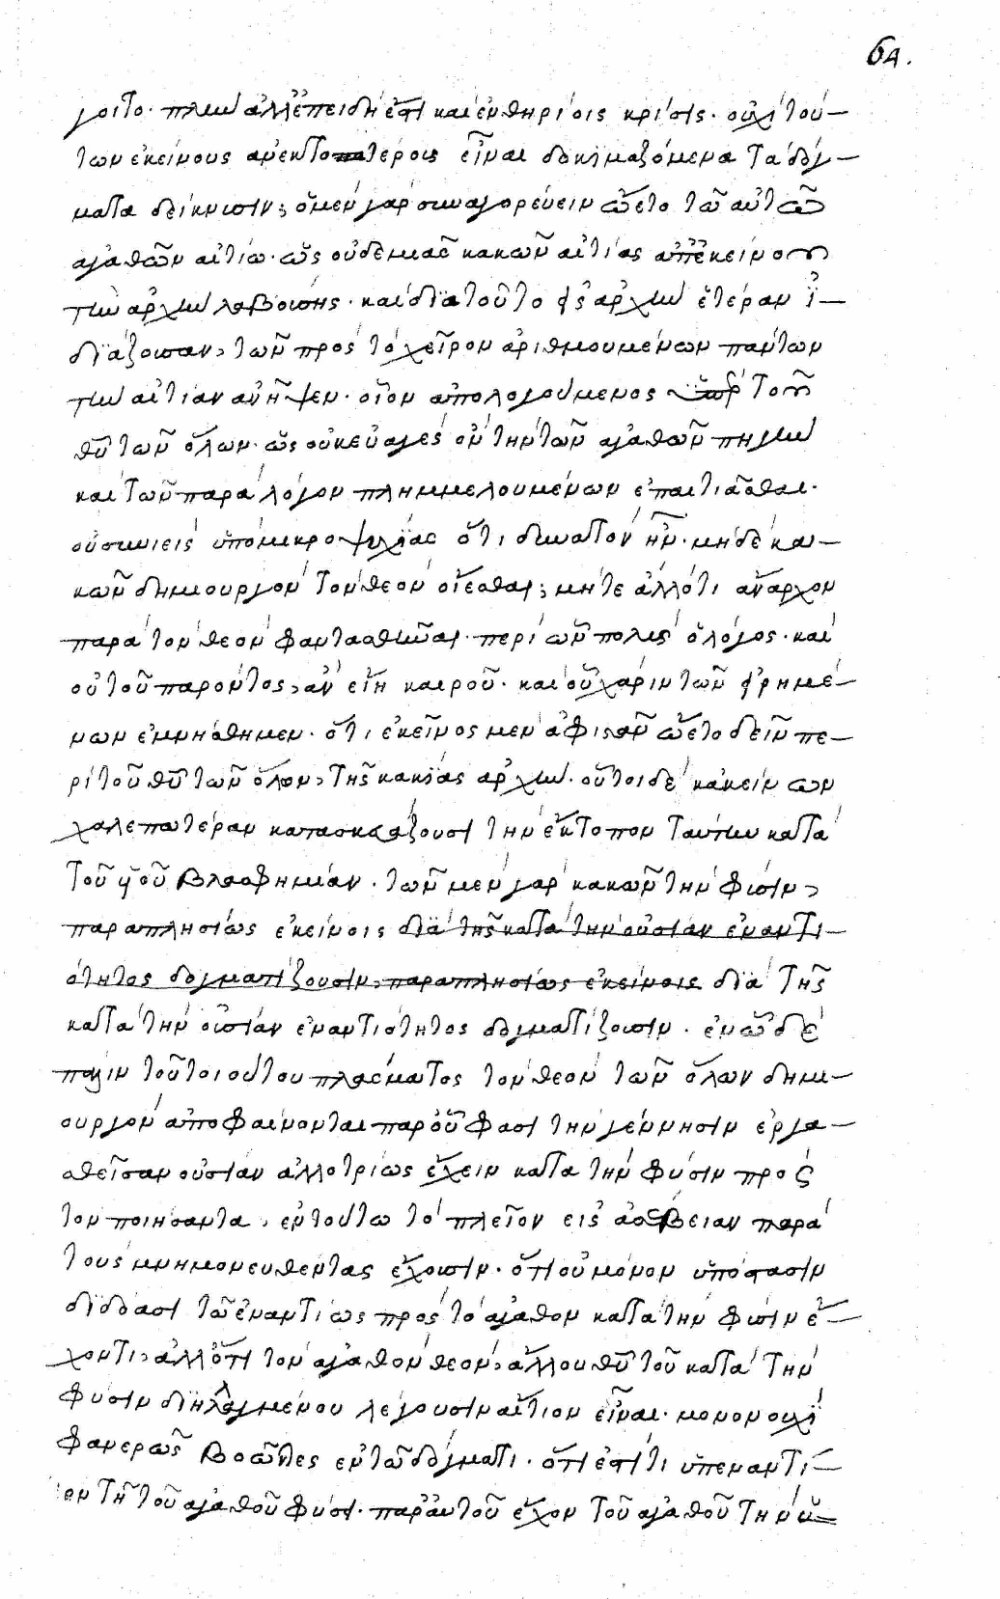 64.
γοιτο. πλὴν ἀλλ' ἐπειδή ἐστι καὶ ἐν θηρίοις κρίσις. οὐχὶ τού-
των ἐκείνους ἀνεκτοτέρους εἶναι δοκιμαζόμενα τὰ δόγ-
ματα δείκνυσιν; ὁ μὲν γὰρ συναγορεύειν ὤετο τῶ αὐτῶ
ἀγαθῶν αἰτίω. ὡς οὐδεμιᾶς κακῶν αἰτίας ἀπ' ἐκείνου
τὴν ἀρχὴν λαβούσης. καὶ διὰ τοῦτο εἰς ἀρχὴν ἑτέραν ἰ-
διάζουσαν, τῶν πρὸς τὸ χεῖρον ἀριθμουμένων πάντων
τὴν αἰτίαν ἀνῆψεν. οἷον ἀπολογούμενος ὑπὲρ τοῦ
θῦ τῶν ὅλων. ὡς οὐκ εὐαγὲς ὂν τὴν τῶν ἀγαθῶν πηγὴν
καὶ τῶν παρὰ λόγον πλημμελουμένων ἐπαιτιᾶσθαι.
οὐ συνιεὶς ὑπὸ μικροψυχίας ὅτι δυνατὸν ἦν. μήδὲ κα-
κῶν δημιουργὸν τὸν θεὸν οἴεσθαι; μήτε ἄλλό τι ἄναρχον
παρὰ τὸν θεὸν φαντασθῆναι. περὶ ὧν πολὺς ὁ λόγος. καὶ
οὐ τοῦ παρόντος, ἂν εἴη καιροῦ. καὶ οὗ χάριν τῶν εἰρημέ-
νων ἐμνήσθημεν. ὅτι ἐκεῖνος μὲν ἀφιστᾶν ὤετο δεῖν πε-
ρὶ τοῦ θῦ τῶν ὅλων, τῆς κακίας ἀρχὴν. οὗτοι δὲ κἀκείνων
χαλεπωτέραν κατασκευάζουσι τὴν ἔκτοπον ταύτην κατὰ
τοῦ υἱοῦ βλασφημίαν. τῶν μὲν γὰρ κακῶν τὴν φύσιν,
παραπλησίως ἐκείνοις διὰ τῆς κατὰ τὴν οὐσίαν ἐναντι-
ότητος δογματίζουσιν, παραπλησίως ἐκείνοις διὰ τῆς
κατὰ τὴν οὐσίαν ἐναντιότητος δογματίζουσιν. ἐν ὧ δὲ
πάλιν τοῦ τοιούτου πλάσματος τὸν θεὸν τῶν ὅλων δημι-
ουργὸν ἀποφαίνονται παρ' οὗ φασι τὴν γέννησιν ἐργα-
σθεῖσαν οὐσίαν ἀλλοτρίως ἔχειν κατὰ τὴν φύσιν πρὸς
τὸν ποιήσαντα. ἐν τούτω τὸ πλεῖον εἰς ἀσέβειαν παρὰ
τοὺς μνημονευθέντας ἔχουσιν. ὅτι οὐ μόνον ὑπόστασιν
διδόασι τῶ ἐναντίως πρὸς τὸ ἀγαθὸν κατὰ τὴν φύσιν ἔ-
χοντι, ἀλλ' ὅτι τὸν ἀγαθὸν θεὸν, ἄλλου θῦ τοῦ κατὰ τὴν
φύσιν διηλλαγμένου λέγουσιν αἴτιον εἶναι. μονονουχὶ
φανερῶς βοῶντες ἐν τῶ δόγματι. ὅτι ἐστί τι ὑπεναντί-
ον τῆ τοῦ ἀγαθοῦ φύσει. παρ' αὐτοῦ ἔχον τοῦ ἀγαθοῦ τὴν ὕ-